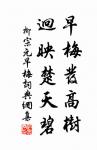 早梅發高樹
迥映楚天碧
柳宗元早梅詞典網集